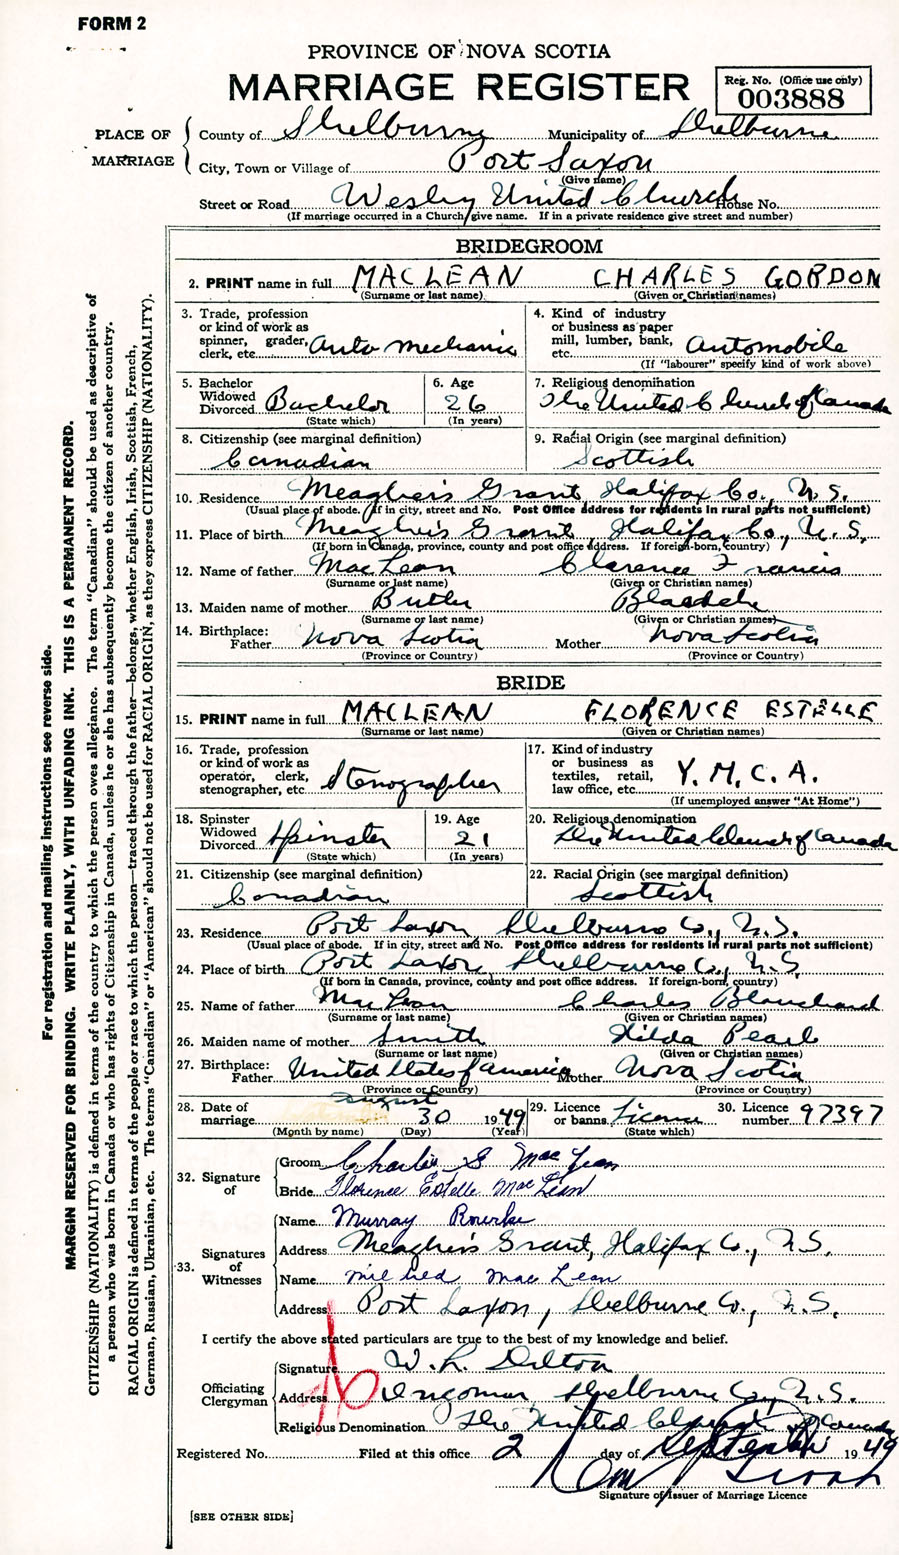 FORM 2
PROVINCE OF NOVA SCOTIA
MARRIAGE REGISTER
Reg. No. (Office use only)
003888
PLACE OF MARRIAGE
County of Shelburne Municipality of Shelburne
City, Town or Village of Port Saxon
(Give name)
Street or Road Wesley United Church House No.
(If marriage occurred in a Church give name. If in a private residence give street and number)
For registration and mailing instructions see reverse side.
MARGIN RESERVED FOR BINDING. WRITE PLAINLY, WITH UNFADING INK. THIS IS A PERMANENT RECORD.
CITIZENSHIP (NATIONALITY) is defined in terms of the country to which the person owes allegiance. The term "Canadian" should be used as descriptive of
a person who was born in Canada or who has rights of Citizenship in Canada, unless he or she has subsequently become the citizen of another country.
RACIAL ORIGIN is defined in terms of the people or race to which the person—traced through the father—belongs, whether English, Irish, Scottish, French,
German, Russian, Ukrainian, etc. The terms "Canadian" or "American" should not be used for RACIAL ORIGIN, as they express CITIZENSHIP (NATIONALITY).
BRIDEGROOM
2. PRINT name in full MACLEAN CHARLES GORDON
(Surname or last name) (Given or Christian names)
3. Trade, profession or kind of work as spinner, grader, clerk, etc. Auto mechanic
4. Kind of industry or business as paper mill, lumber, bank, etc. Automobile
(If "labourer" specify kind of work above)
5. Bachelor Widowed Divorced Bachelor
(State which)
6. Age 26
(In years)
7. Religious denomination
The United Church of Canada
8. Citizenship (see marginal definition)
Canadian
9. Racial Origin (see marginal definition)
Scottish
10. Residence Meagher's Grant, Halifax Co., N.S.
(Usual place of abode. If in city, street and No. Post Office address for residents in rural parts not sufficient)
11. Place of birth Meagher's Grant Halifax Co., N.S.
(If born in Canada, province, county and post office address. If foreign-born, country)
12. Name of father MacLean Clarence Francis
(Surname or last name) (Given or Christian names)
13. Maiden name of mother Butler
(Surname or last name) (Given or Christian names)
14. Birthplace: Father Nova Scotia Mother Nova Scotia
(Province or Country) (Province or Country)
BRIDE
15. PRINT name in full MACLEAN FLORENCE ESTELLE
(Surname or last name) (Given or Christian names)
16. Trade, profession or kind of work as operator, clerk, stenographer, etc. Stenographer
17. Kind of industry or business as textiles, retail, law office, etc. Y.M.C.A.
(If unemployed answer "At Home")
18. Spinster Widowed Divorced Spinster
(State which)
19. Age 21
(In years)
20. Religious denomination
The United Church of Canada
21. Citizenship (see marginal definition)
Canadian
22. Racial Origin (see marginal definition)
Scottish
23. Residence Port Saxon Shelburne Co., N.S.
(Usual place of abode. If in city, street and No. Post Office address for residents in rural parts not sufficient)
24. Place of birth Port Saxon, Shelburne Co., N.S.
(If born in Canada, province, county and post office address. If foreign-born, country)
25. Name of father MacLean Charles Blanchard
(Surname or last name) (Given or Christian names)
26. Maiden name of mother Smith Hilda Pearl
(Surname or last name) (Given or Christian names)
27. Birthplace: Father United States of America Mother Nova Scotia
(Province or Country) (Province or Country)
28. Date of marriage August 30 1949
(Month by name) (Day) (Year)
29. Licence or banns License
(State which)
30. Licence number 97397
32. Signature of
Groom Charles G MacLean
Bride Florence Estelle MacLean
33. Signatures of Witnesses
Name Murray Rourke
Address Meagher's Grant, Halifax Co., N.S.
Name Mildred MacLean
Address Port Saxon, Shelburne Co., N.S.
I certify the above stated particulars are true to the best of my knowledge and belief.
Officiating Clergyman
Signature W. L. Dilton
Address Ingomar Shelburne Co., N.S.
Religious Denomination The United Church of Canada
Registered No. Filed at this office 2 day of September 1949
Signature of Issuer of Marriage Licence
[SEE OTHER SIDE]